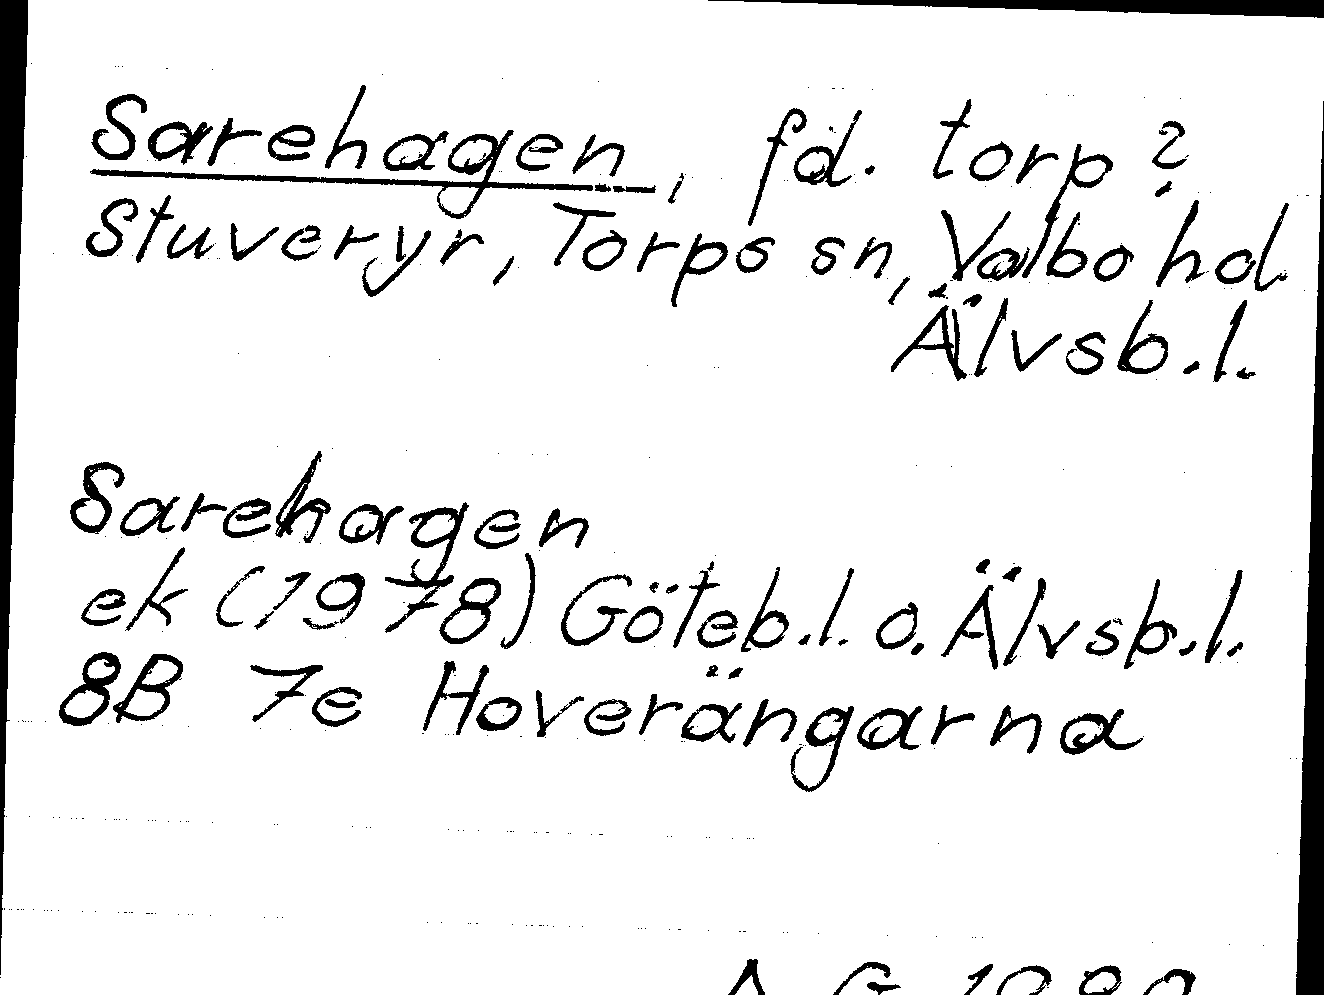 Sarehagen, fd. torp?
Stuveryr, Torps sn, Valbo hd
Älvsb.l.
Sarehagen
ek (1978) Göteb.l. o. Älvsb.l.
8B 7e Hoverängarna